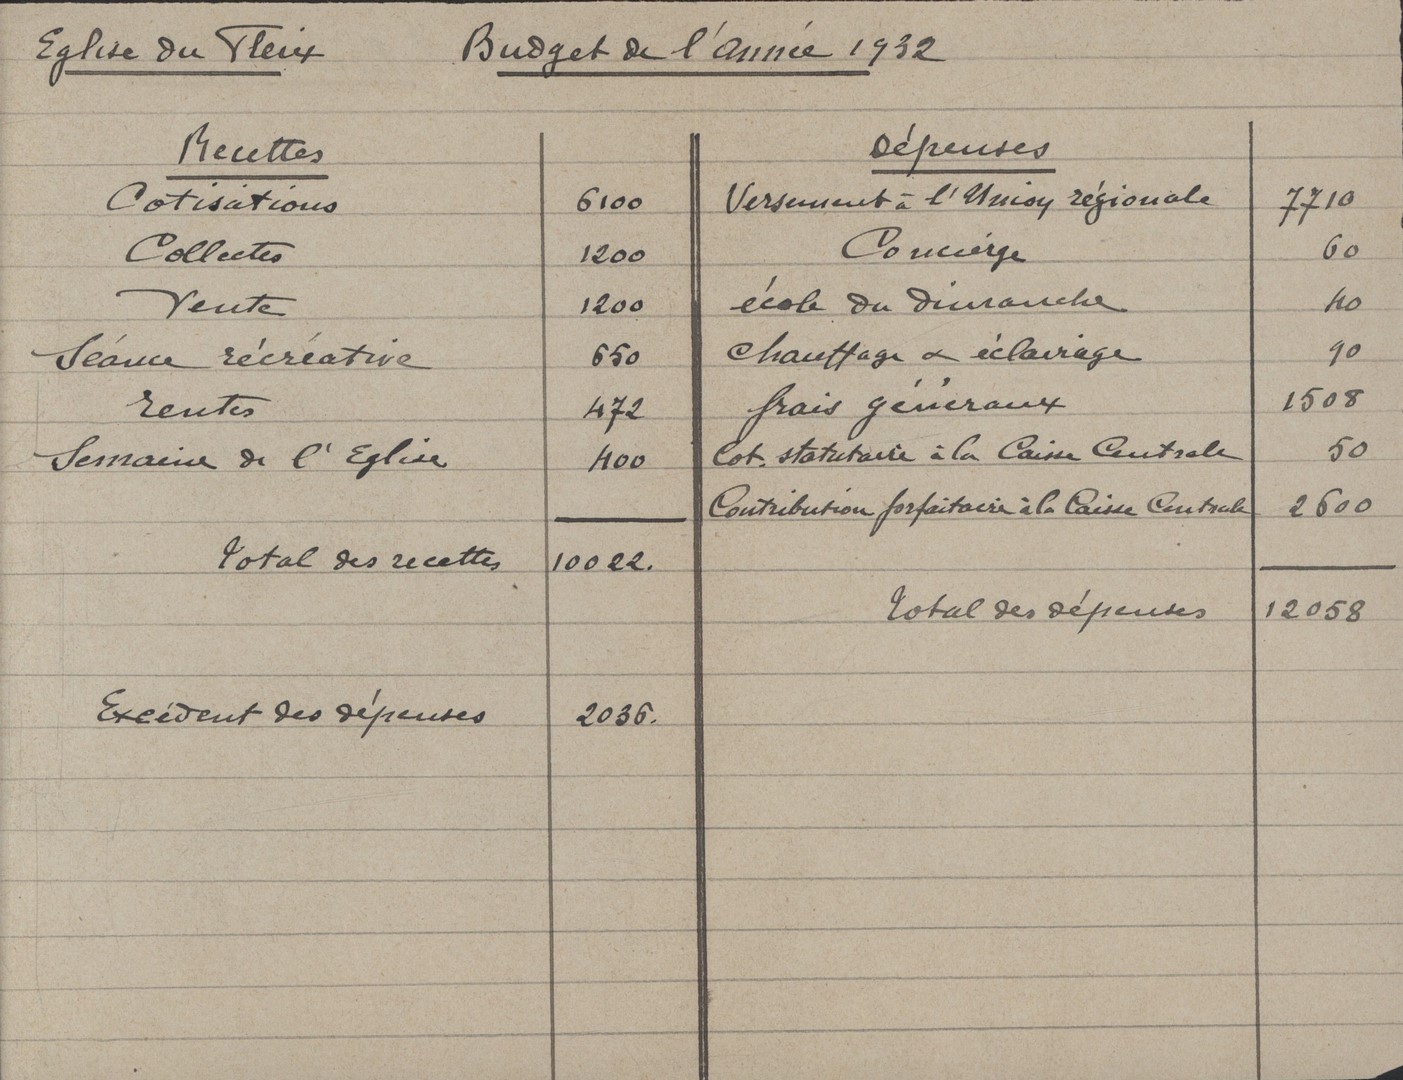 Eglise du Fleix Budget de l'Année 1932
Recettes
Cotisations 6100
Collectes 1200
Vente 1200
Séance récréative 650
rentes 472
Semaine de l'Eglise 400
Total des recettes 10022.
Excédent des dépenses 2036.
Dépenses
Versement à l'Union régionale 7710
Concierge 60
école du dimanche 40
chauffage & éclairage 90
frais généraux 1508
Cot. statutaire à la Caisse Centrale 50
Contribution forfaitaire à la Caisse Centrale 2600
Total des dépenses 12058